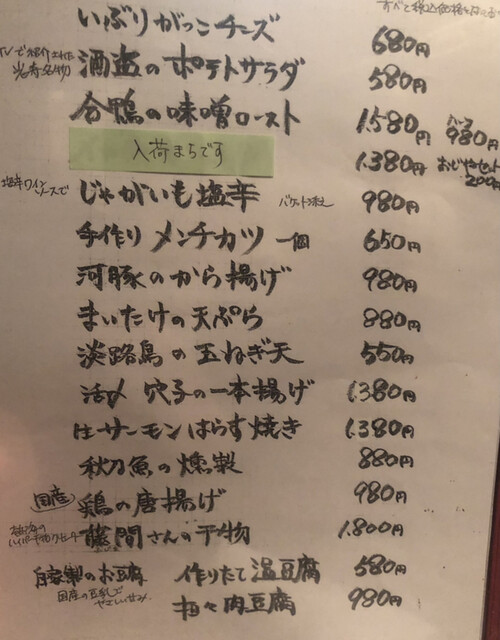 すべて税込価格
いぶりがっこチーズ 680円
TVで紹介された
酒盗のポテトサラダ 580円
合鴨の味噌ロースト 1.580円 ハーフ 980円
入荷まちです 1.380円 おじやセット 200円
じゃがいも塩辛 バケット添え 980円
手作り メンチカツ 一個 650円
河豚のから揚げ 980円
まいたけの天ぷら 880円
淡路島の玉ねぎ天 550円
活〆 穴子の一本揚げ 1.380円
生サーモンはらす焼き 1.380円
秋刀魚の燻製 880円
国産 鶏の唐揚げ 980円
藤間さんの干物 1.800円
自家製のお豆腐 作りたて温豆腐 580円
国産の豆乳で
やさしい甘み 担々肉豆腐 980円